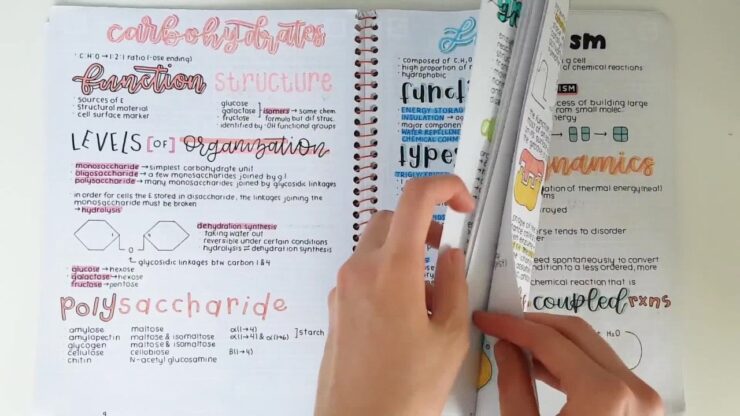 carbohydrates
· C:H:O → 1:2:1 ratio (-ose ending)
function structure
· sources of E
· structural material
· cell surface marker
glucose
galactose
fructose
isomers → same chem.
formula but dif struc.
· identified by -OH functional groups
LEVELS [OF] organization
monosaccharide → simplest carbohydrate unit
oligosaccharide → a few monosaccharides joined by g.l
polysaccharide → many monosaccharides; joined by glycosidic linkages
in order for cells the E stored in disaccharide, the linkages joining the
monosaccharide must be broken
→ hydrolysis
O
dehydration synthesis
· taking water out
· reversible under certain conditions
· hydrolysis ⇌ dehydration synthesis
glycosidic linkages btw carbon 1 & 4
· glucose → hexose
· galactose → hexose
· fructose → pentose
polysaccharide
amylose maltose α(1→4)
amylopectin maltose & isomaltose α(1→4) & α(1→6)
] starch
glycogen maltose & isomaltose
cellulose cellobiose β(1→4)
chitin N-acetyl glucosamine
· composed of C, H, O
· high proportion of
· hydrophobic
funct
ENERGY STORAG
INSULATION →
major component
WATER REPELLEN
CHEMICAL COMM
types
TRIGLY
ism
g a cell
of chemical reactions
ISM
cess of building large
rom small molec
nergy
ynamics
ation of thermal energy (heat)
ms
royed
rse tends to disorder
eed spontaneously to convert
ndition to a less ordered, more
chemical reaction that is
coupled rxns
H₂O